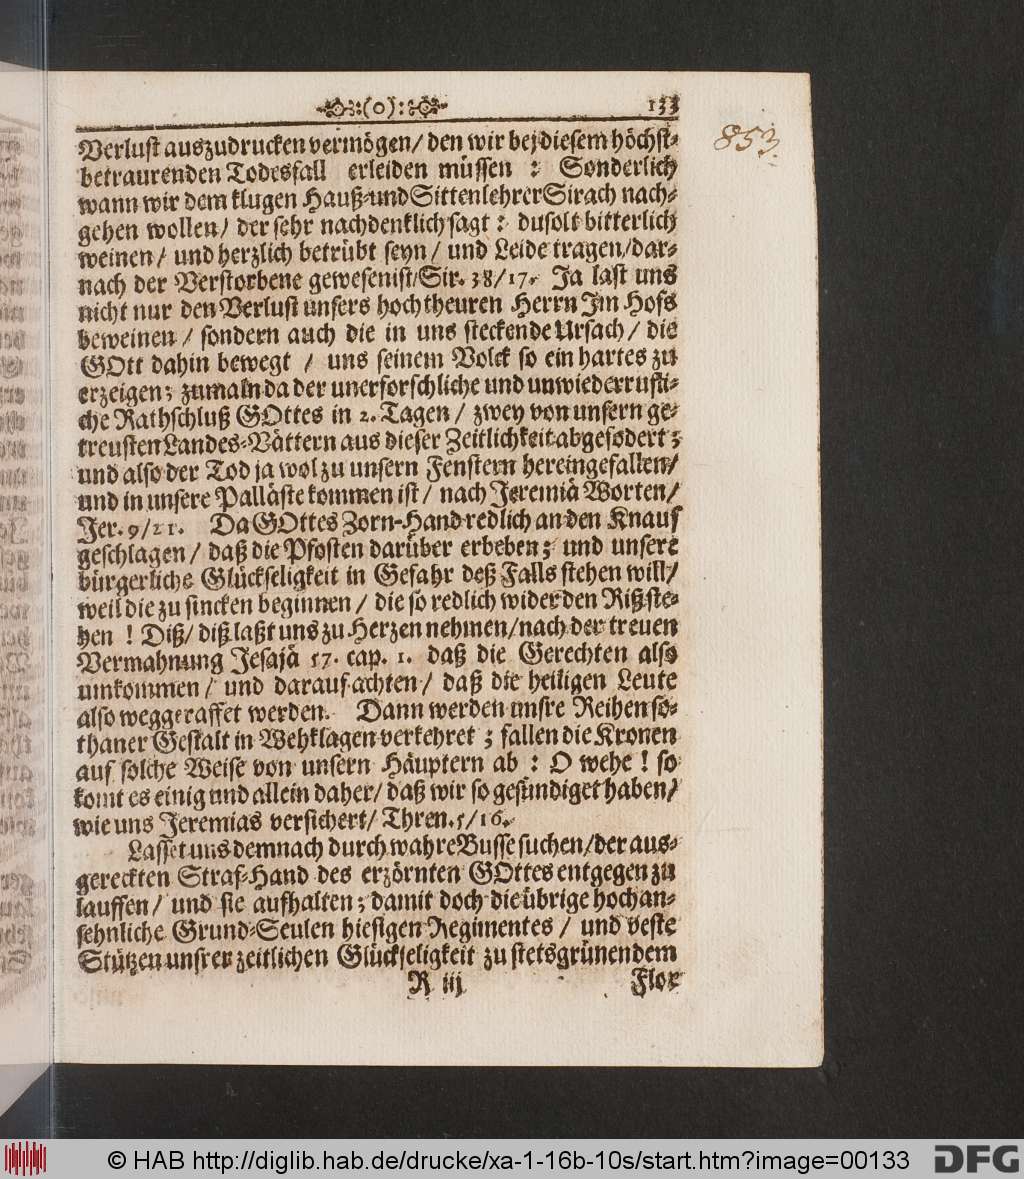 (o) 133
853.
Verlust auszudrucken vermögen/ den wir bej diesem höchst-
betraurenden Todesfall erleiden müssen : Sonderlich
wann wir dem klugen Hauß-und Sittenlehrer Sirach nach-
gehen wollen/ der sehr nachdenklich sagt : du solt bitterlich
weinen/ und herzlich betrübt seyn/ und Leide tragen/ dar-
nach der Verstorbene gewesen ist/ Sir. 38/17. Ja last uns
nicht nur den Verlust unsers hochtheuren Herrn Im Hofs
beweinen/ sondern auch die in uns steckende Ursach/ die
GOtt dahin bewegt / uns seinem Volck so ein hartes zu
erzeigen; zumaln da der unerforschliche und unwiederrufli-
che Rathschluß GOttes in 2. Tagen/ zwey von unsern ge-
treusten Landes-Vättern aus dieser Zeitlichkeit abgefodert;
und also der Tod ja wol zu unsern Fenstern hereingefallen/
und in unsere Palläste kommen ist/ nach Jeremiä Worten/
Jer. 9/21. Da GOttes Zorn-Hand redlich an den Knauf
geschlagen/ daß die Pfosten darüber erbeben; und unsere
bürgerliche Glückseligkeit in Gefahr deß Falls stehen will/
weil die zu sincken beginnen/ die so redlich wider den Riß ste-
hen ! Diß/ diß laßt uns zu Herzen nehmen/ nach der treuen
Vermahnung Jesajä 57. cap. 1. daß die Gerechten also
umkommen/ und darauf achten/ daß die heiligen Leute
also weggeraffet werden. Dann werden unsre Reihen so-
thaner Gestalt in Wehklagen verkehret ; fallen die Kronen
auf solche Weise von unsern Häuptern ab : O wehe ! so
komt es einig und allein daher/ daß wir so gesündiget haben/
wie uns Jeremias versichert/ Thren. 5/16.
Lasset uns demnach durch wahre Busse suchen/ der aus-
gereckten Straf-Hand des erzörnten GOttes entgegen zu
lauffen/ und sie aufhalten; damit doch die übrige hochan-
sehnliche Grund-Seulen hiesigen Regimentes / und veste
Stützen unsrer zeitlichen Glückseligkeit zu stetsgrünendem
R iij Flor
© HAB http://diglib.hab.de/drucke/xa-1-16b-10s/start.htm?image=00133 DFG